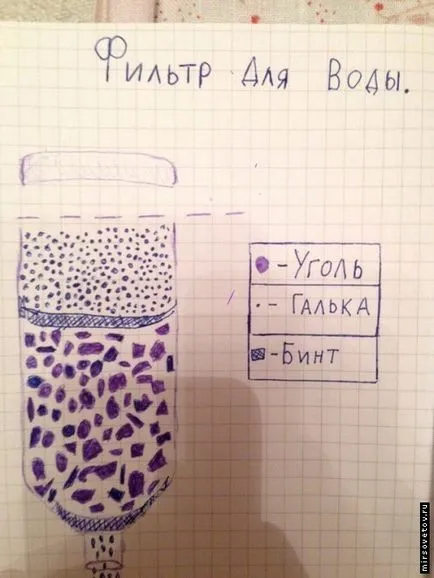 Фильтр для воды.
- Уголь
- Галька
- Бинт
mirsovetov.ru